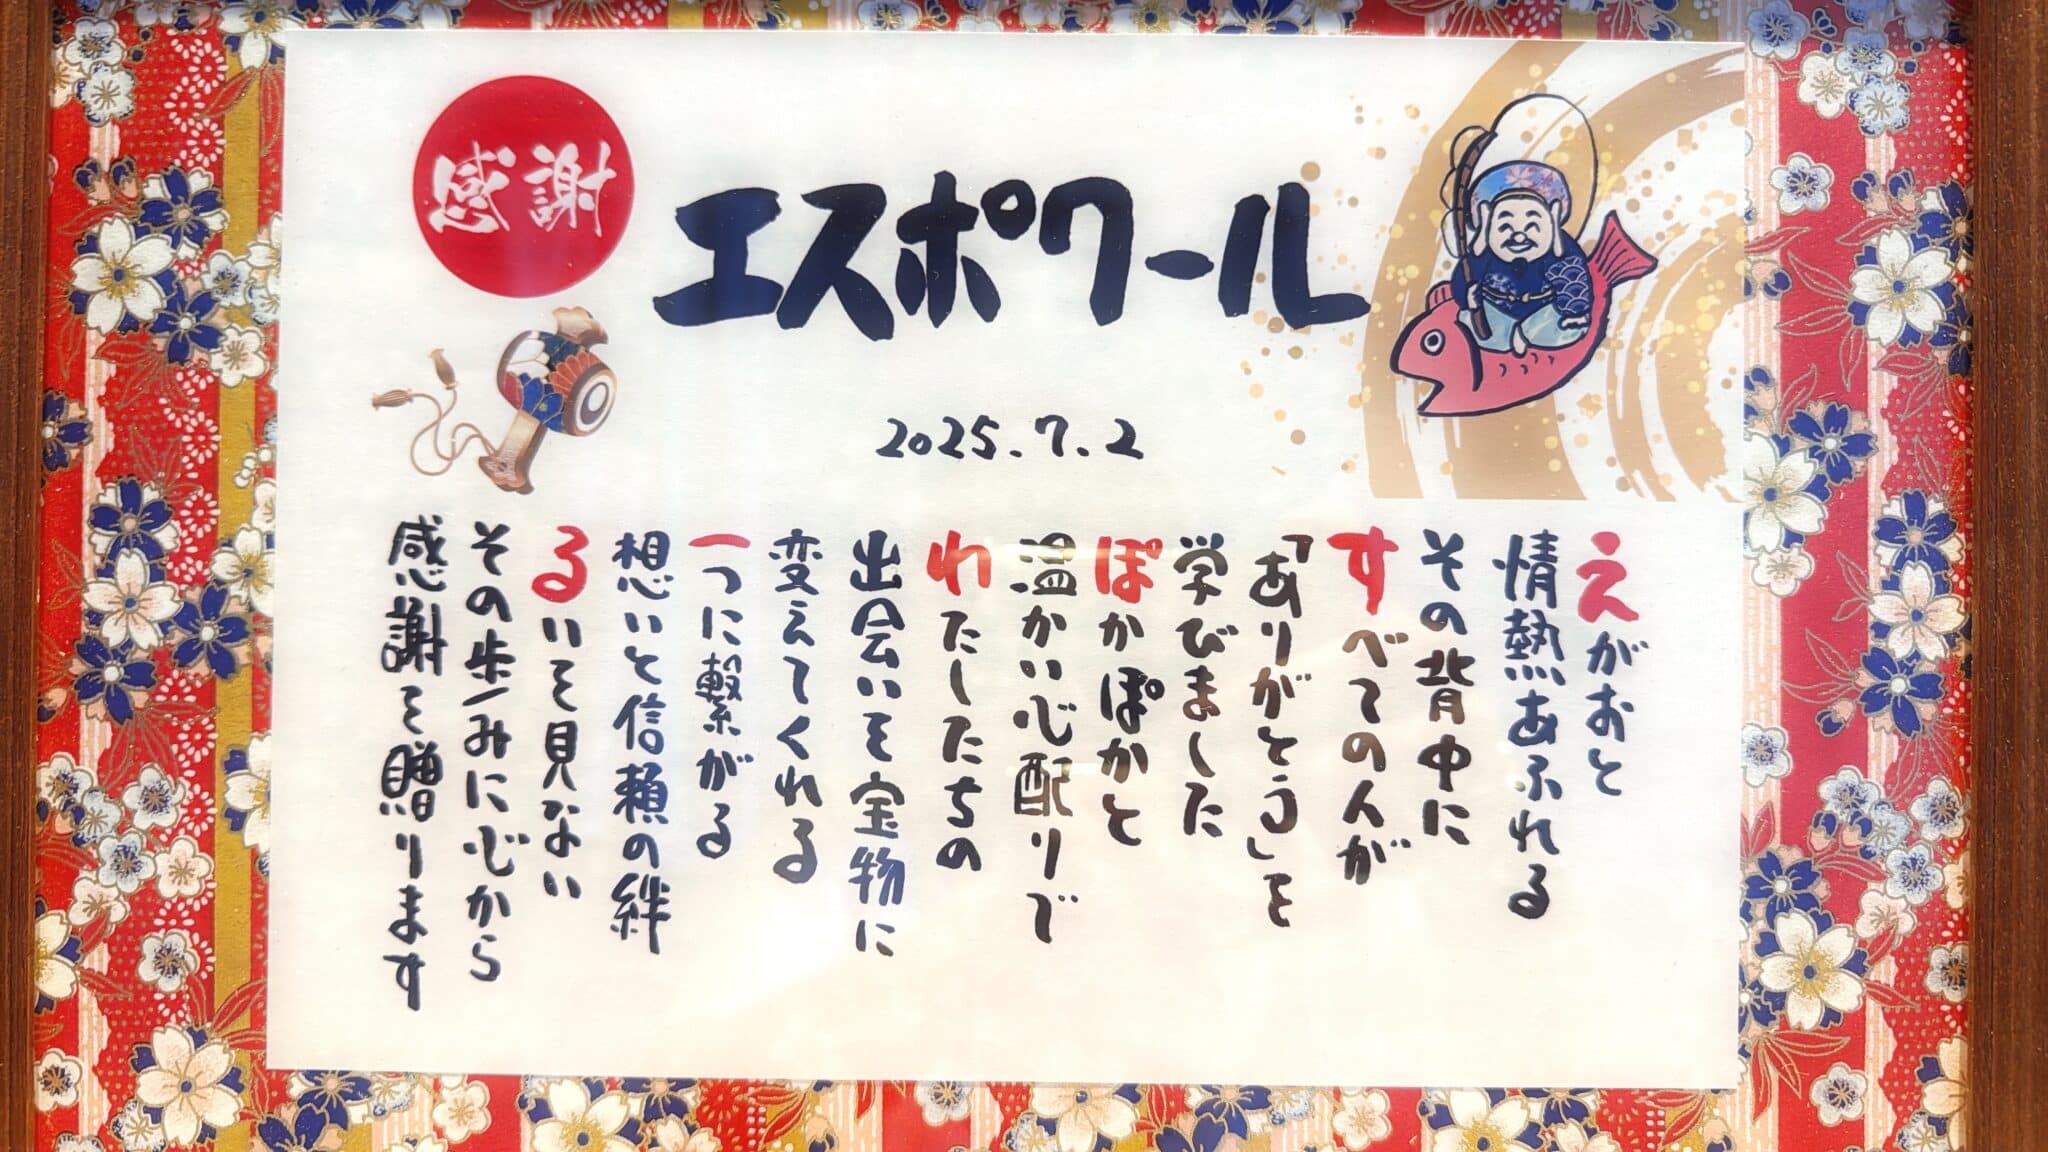 感謝
エスポワール
2025.7.2
えがおと
情熱あふれる
その背中に
すべての人が
「ありがとう」を
学びました
ぽかぽかと
温かい心配りで
わたしたちの
出会いを宝物に
変えてくれる
一つに繋がる
想いと信頼の絆
るいを見ない
その歩みに心から
感謝を贈ります